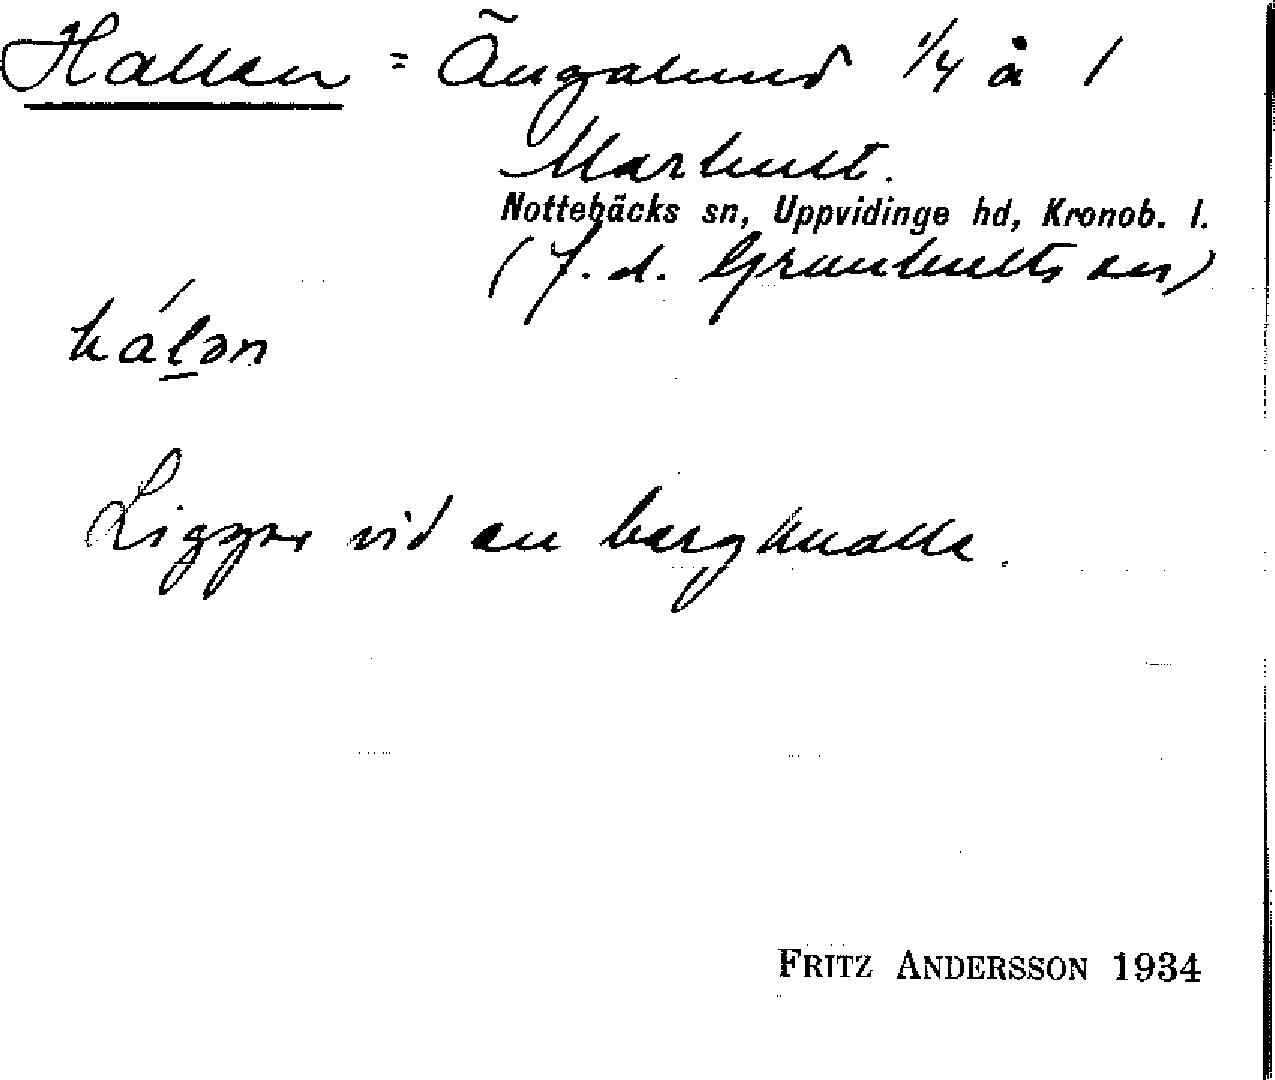 Hallen = Ängalund 1/4 å 1
Marhult.
Nottebäcks sn, Uppvidinge hd, Kronob. l.
(f. d. Granhults sn)
hálən
Ligger vid en bergknalle.
FRITZ ANDERSSON 1934